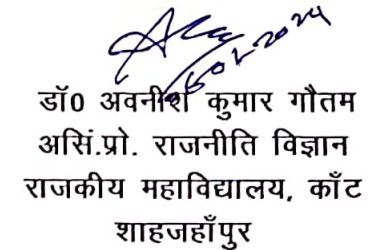 डॉ0 अवनीश कुमार गौतम
असिं.प्रो. राजनीति विज्ञान
राजकीय महाविद्यालय, काँट
शाहजहाँपुर